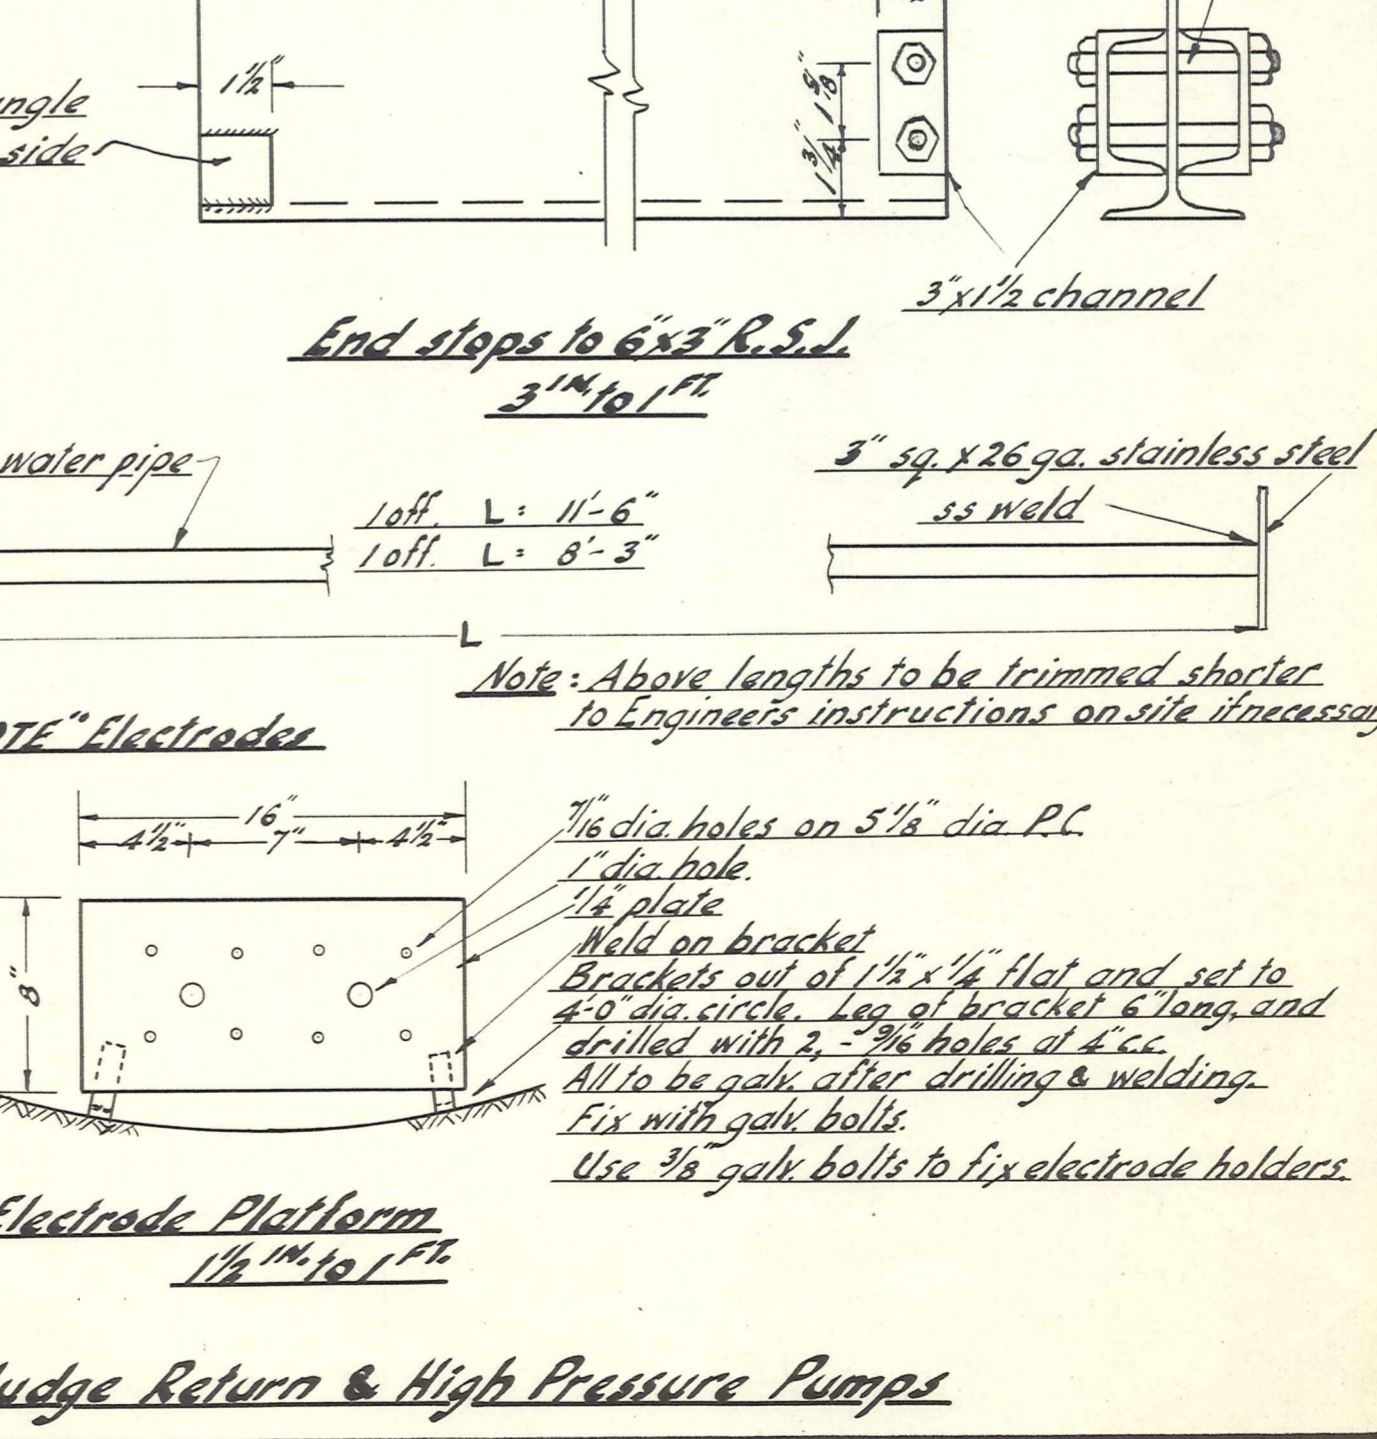 1½"
angle
side
1 5/8"
1 3/4"
3"x1½ channel
End stops to 6"x3" R.S.J.
3 IN. to 1 FT.
water pipe
1 off. L = 11'-6"
1 off. L = 8'-3"
3" sq. x 26 ga. stainless steel
ss weld
L
Note: Above lengths to be trimmed shorter
to Engineers instructions on site if necessary
OTE" Electrodes
16"
4½" 7" 4½"
8"
7/16" dia. holes on 5 1/8" dia P.C.
1" dia. hole.
1/4" plate
Weld on bracket
Brackets out of 1½" x 1/4" flat and set to
4'-0" dia. circle. Leg of bracket 6" long, and
drilled with 2, - 9/16" holes at 4" c.c.
All to be galv. after drilling & welding.
Fix with galv. bolts.
Use 3/8" galv. bolts to fix electrode holders.
Electrode Platform
1½ IN. to 1 FT.
ludge Return & High Pressure Pumps